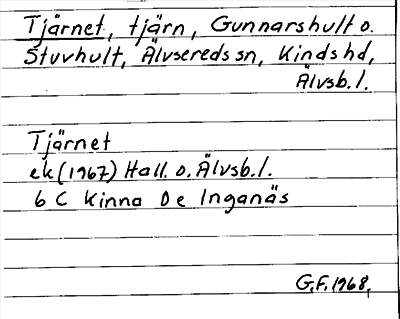 Tjärnet, tjärn, Gunnarshult o.
Stuvhult, Älvsereds sn, Kinds hd,
Älvsb. l.
Tjärnet
ek (1967) Hall. o. Älvsb. l.
6 C Kinna 0 e Inganäs
G.F. 1968.